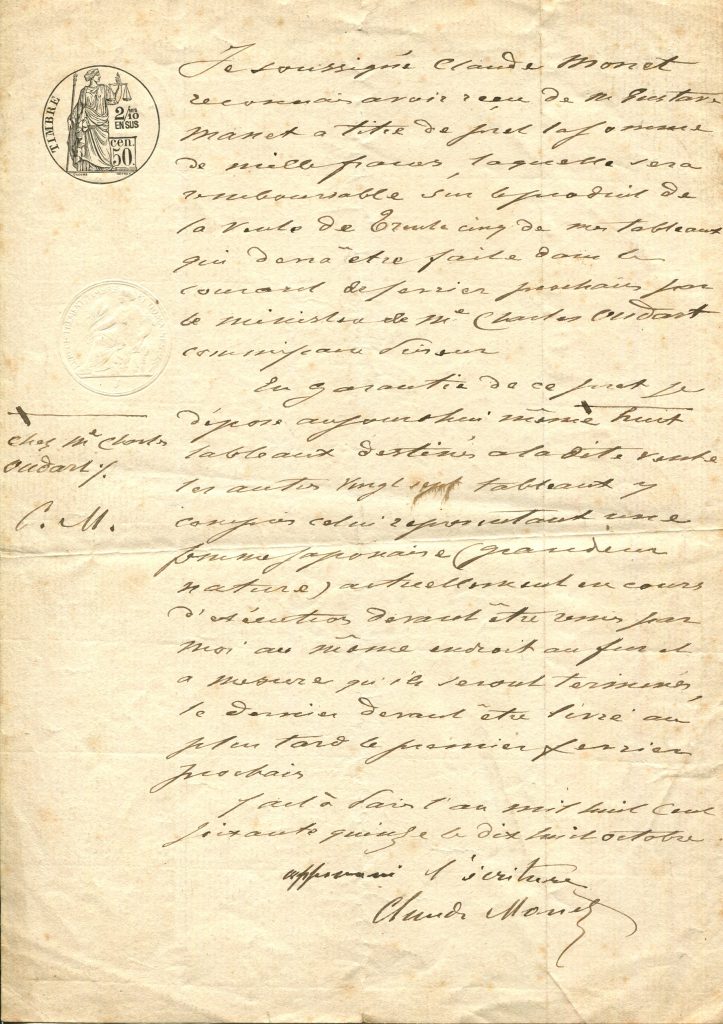 TIMBRE
2/10
EN SUS
cen.
50
Je soussigné Claude Monet
reconnais avoir reçu de M Gustave
Manet a titre de pret la somme
de mille francs laquelle sera
remboursable sur le produit de
la vente de Trente cinq de mes tableaux
qui devra être faite dans le
courant de fevrier prochain par
le ministère de Me Charles Oudart
commissaire priseur
En garantie de ce pret je
dépose aujourdhui même huit
tableaux destinés a la dite vente
les autres vingt sept tableaux y
compris celui representant une
femme japonaise (grandeur
nature) actuellement en cours
d'exécution devant être remis par
moi au même endroit au fur et
a mesure qu'ils seront terminés,
le dernier devant être livré au
plus tard le premier fevrier
prochain
fait à Paris l'an mil huit cent
soixante quinze le dix huit octobre
approuvé l'écriture
Claude Monet
chez Me Charles
Oudart
C. M.